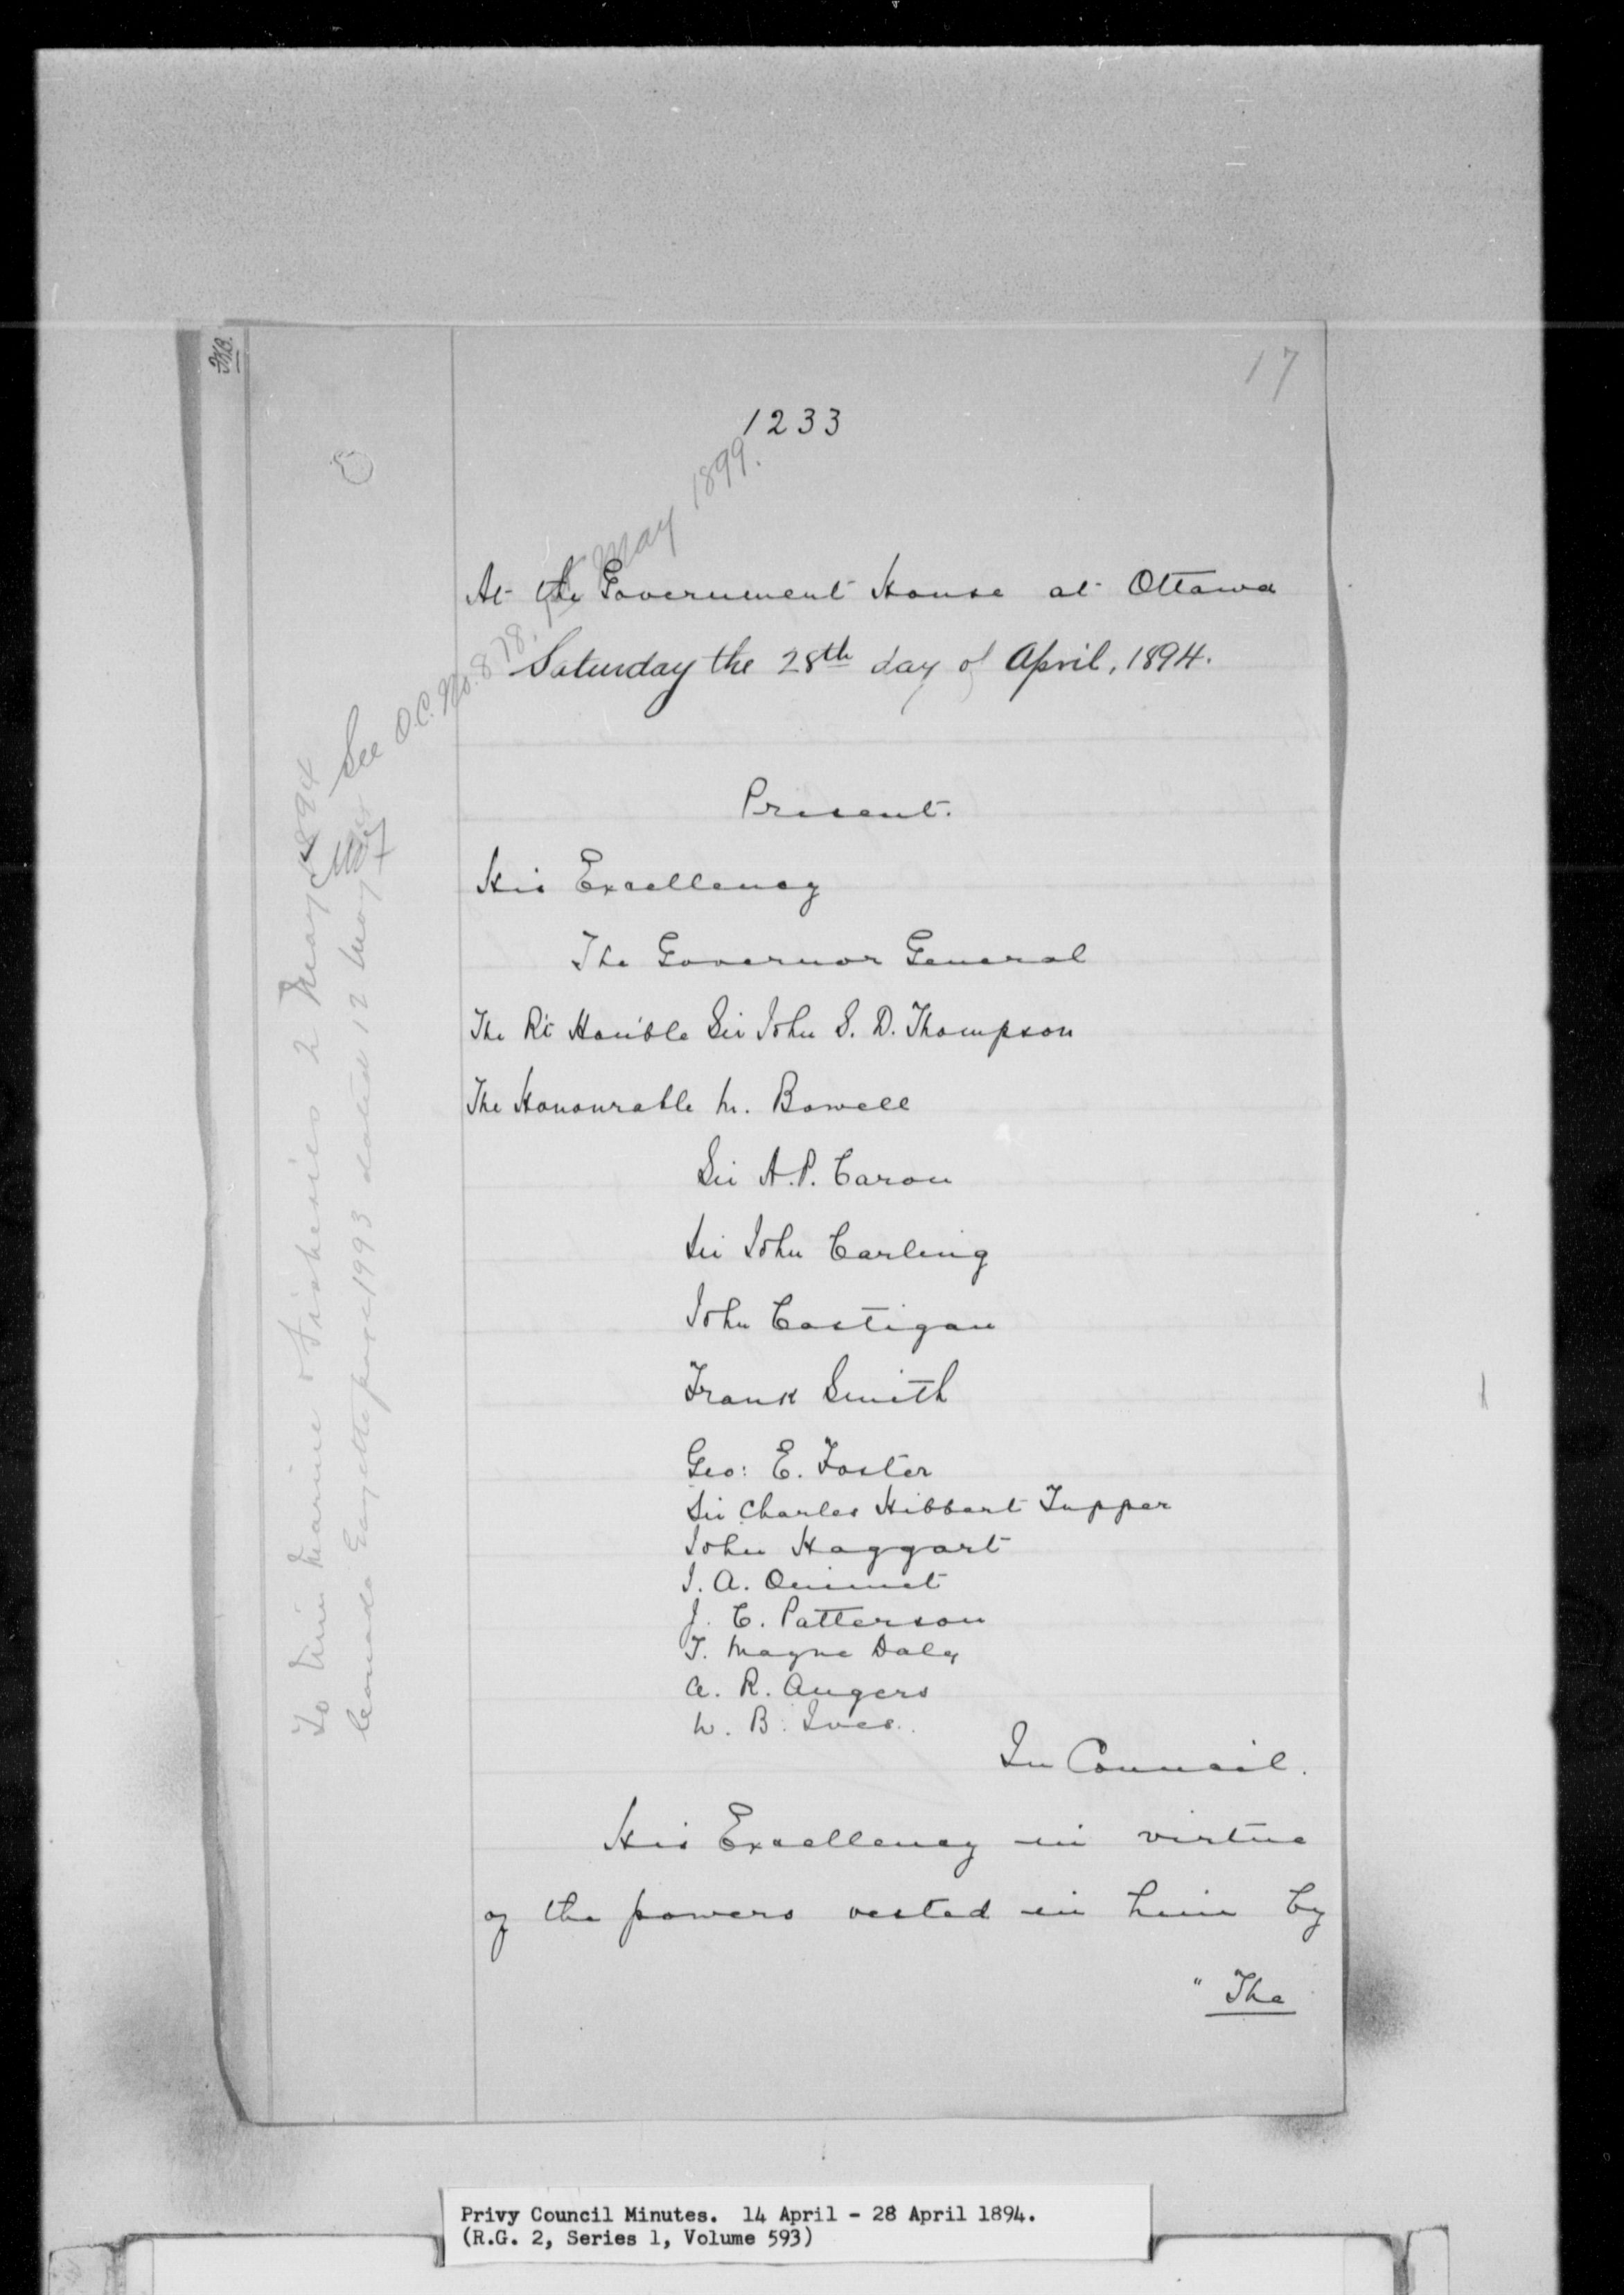 17
1233
See O.C. No. 878. May 1899.
At the Government House at Ottawa
Saturday the 28th day of April, 1894.
Present.
His Excellency
The Governor General
The Rt Hon'ble Sir John S. D. Thompson
The Honourable M. Bowell
Sir A. P. Caron
Sir John Carling
John Costigan
Frank Smith
Geo: E. Foster
Sir Charles Hibbert Tupper
John Haggart
J. A. Ouimet
J. C. Patterson
T. Mayne Daly
A. R. Angers
W. B. Ives.
In Council.
His Excellency in virtue
of the powers vested in him by
" The
To Min Marine & Fisheries 2 May 1894
Canada Gazette page 1993 dated 12 May
Privy Council Minutes. 14 April - 28 April 1894.
(R.G. 2, Series 1, Volume 593)